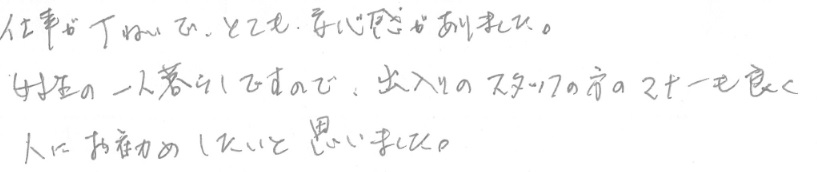 仕事がていねいで、とても、安心感がありました。
女性の一人暮らしですので、出入りのスタッフの方のマナーも良く
人にお勧めしたいと思いました。